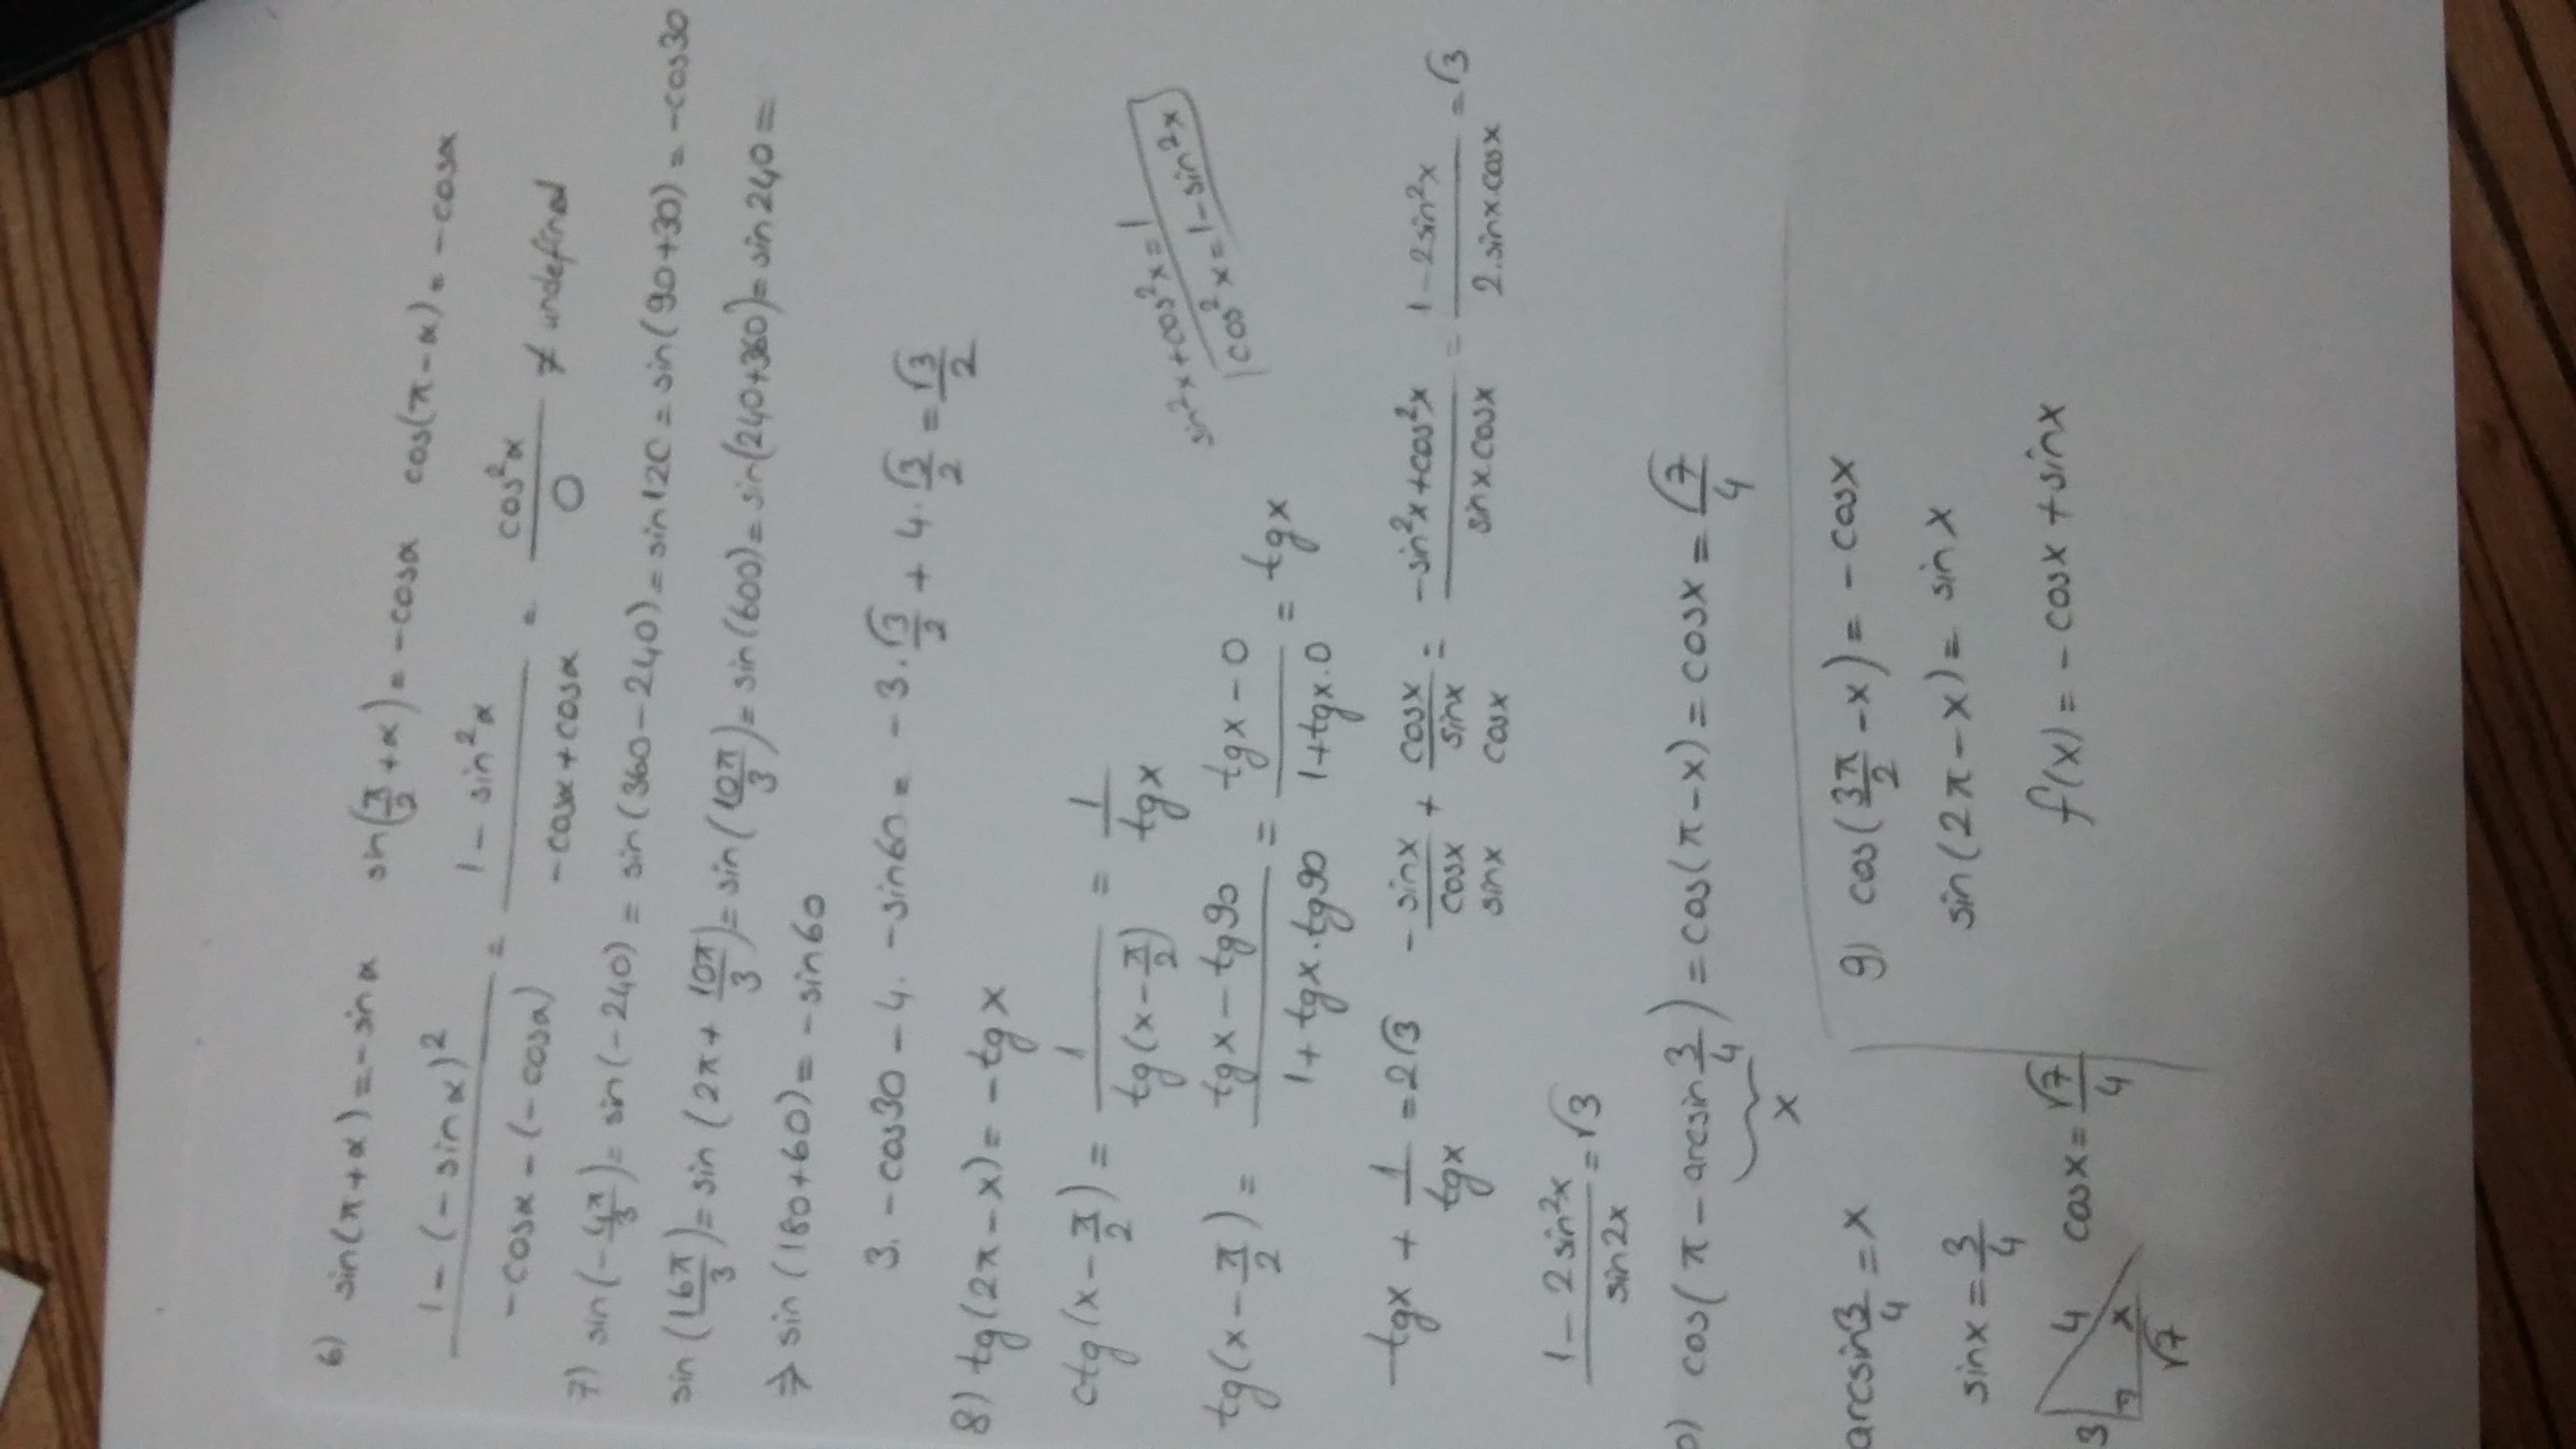 6) sin(π+α)=-sinα sin(π/2+α)=-cosα cos(π-α)=-cosα
1-(-sinα)²/-cosα-(-cosα) = 1-sin²α/-cosα+cosα = cos²α/0 ≠ undefined
7) sin(-4π/3)= sin(-240) = sin(360-240)= sin120 = sin(90+30) = -cos30
sin(16π/3)= sin(2π+10π/3)= sin(10π/3)= sin(600)= sin(240+360)= sin240=
⇒ sin(180+60)= -sin60
3.-cos30-4.-sin60= -3.√3/2 + 4.√3/2 = √3/2
8) tg(2π-x)= -tgx
ctg(x-π/2) = 1/tg(x-π/2) = 1/tgx
sin²x+cos²x=1
cos²x=1-sin²x
tg(x-π/2) = tgx-tg90/1+tgx.tg90 = tgx-0/1+tgx.0 = tgx
-tgx + 1/tgx = 2√3 -sinx/cosx + cosx/sinx = -sin²x+cos²x/sinx.cosx = 1-2sin²x/2.sinx.cosx = √3
sinx cosx
1-2sin²x/sin2x = √3
cos(π-arcsin3/4) = cos(π-x) = cosx = √7/4
x
arcsin3/4 = x
sinx = 3/4
3 4 x √7 cosx = √7/4
9) cos(3π/2-x) = -cosx
sin(2π-x) = sinx
f(x) = -cosx+sinx